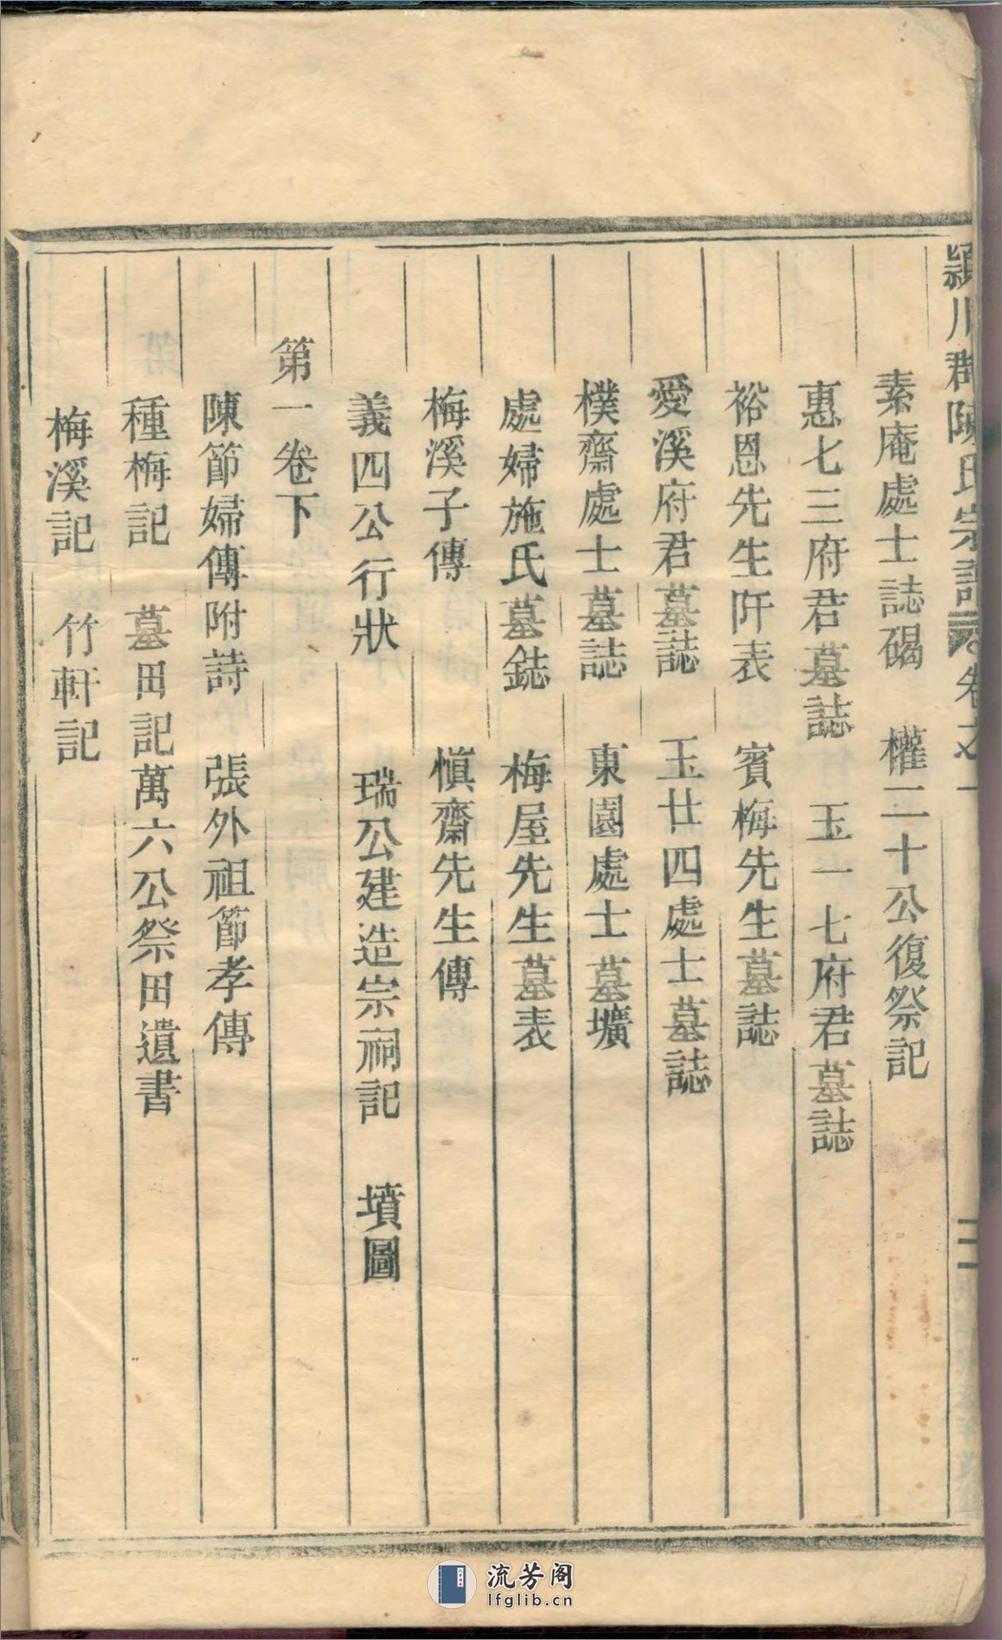 潁川郡陳氏宗譜 卷之一 二
素庵處士誌碣 權二十公復祭記
惠七三府君墓誌 玉一七府君墓誌
裕恩先生阡表 賓梅先生墓誌
愛溪府君墓誌 玉廿四處士墓誌
樸齋處士墓誌 東園處士墓壙
處婦施氏墓誌 梅屋先生墓表
梅溪子傳 愼齋先生傳
義四公行狀 瑞公建造宗祠記 墳圖
第一卷下
陳節婦傳附詩 張外祖節孝傳
種梅記 墓田記 萬六公祭田遺書
梅溪記 竹軒記
流芳阁
lfglib.cn